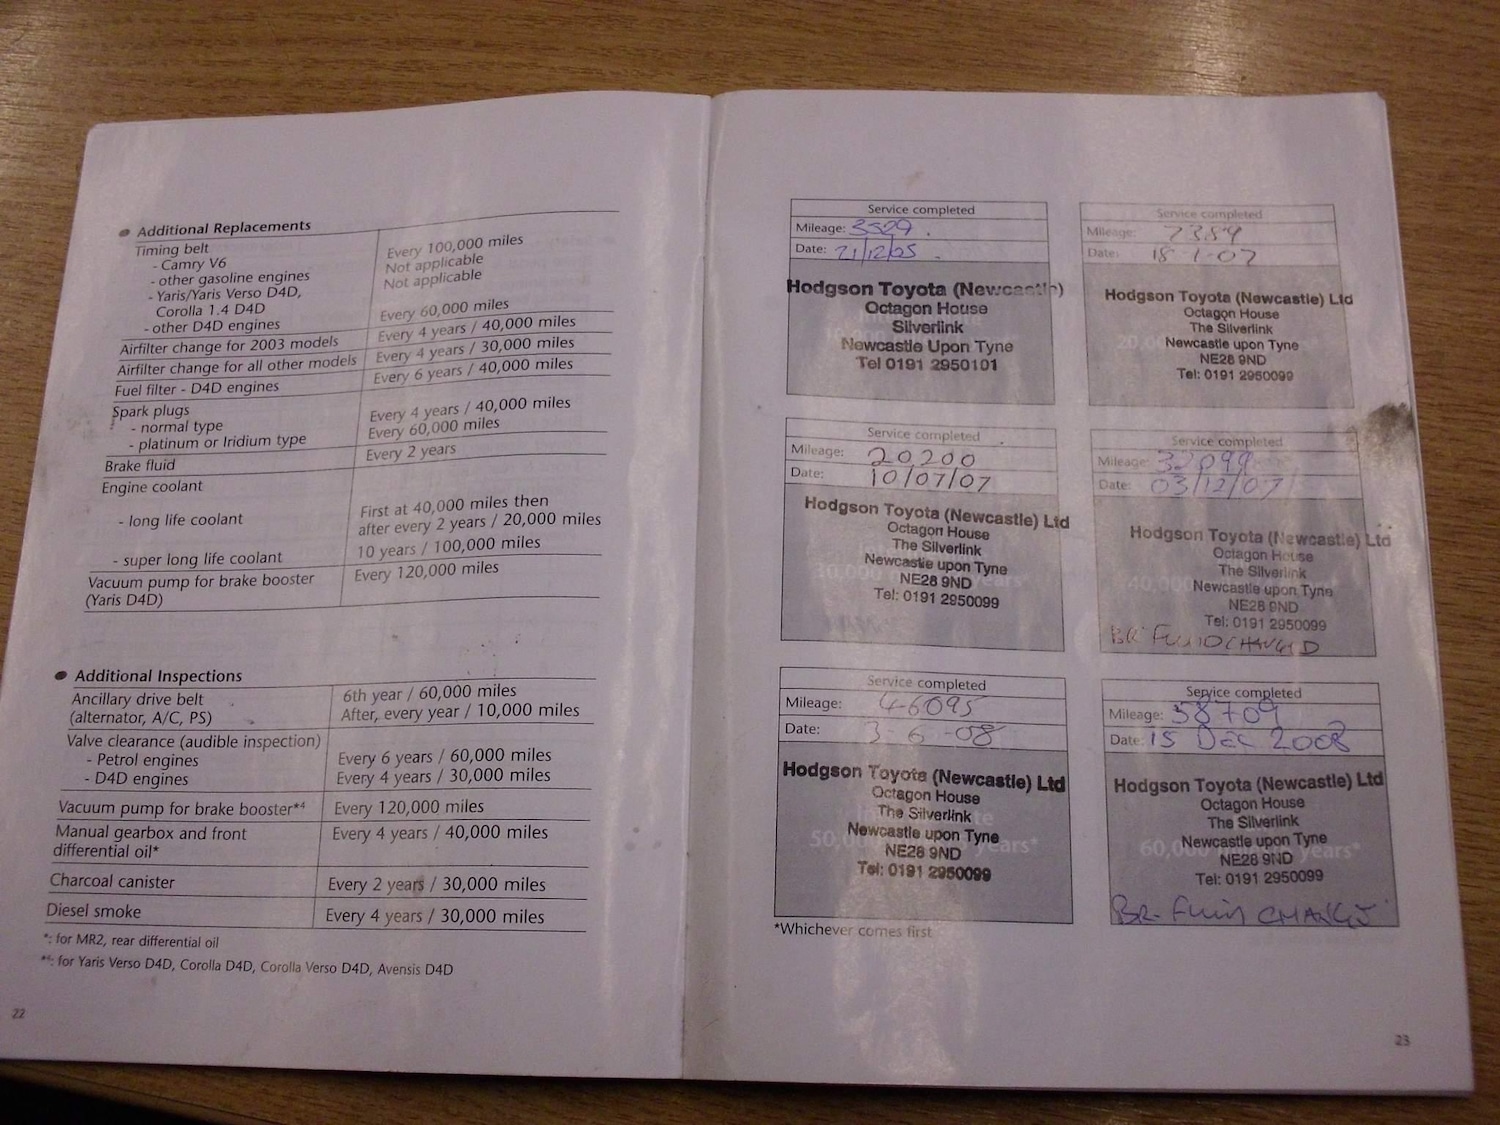 Additional Replacements
Timing belt
- Camry V6 Every 100,000 miles
- other gasoline engines Not applicable
- Yaris/Yaris Verso D4D, Not applicable
Corolla 1.4 D4D
- other D4D engines Every 60,000 miles
Airfilter change for 2003 models Every 4 years / 40,000 miles
Airfilter change for all other models Every 4 years / 30,000 miles
Fuel filter - D4D engines Every 6 years / 40,000 miles
Spark plugs
- normal type Every 4 years / 40,000 miles
- platinum or Iridium type Every 60,000 miles
Brake fluid Every 2 years
Engine coolant
- long life coolant First at 40,000 miles then
after every 2 years / 20,000 miles
- super long life coolant 10 years / 100,000 miles
Vacuum pump for brake booster Every 120,000 miles
(Yaris D4D)
Additional Inspections
Ancillary drive belt 6th year / 60,000 miles
(alternator, A/C, PS) After, every year / 10,000 miles
Valve clearance (audible inspection)
- Petrol engines Every 6 years / 60,000 miles
- D4D engines Every 4 years / 30,000 miles
Vacuum pump for brake booster*⁴ Every 120,000 miles
Manual gearbox and front Every 4 years / 40,000 miles
differential oil*
Charcoal canister Every 2 years / 30,000 miles
Diesel smoke Every 4 years / 30,000 miles
*: for MR2, rear differential oil
*⁴: for Yaris Verso D4D, Corolla D4D, Corolla Verso D4D, Avensis D4D
22
Service completed
Mileage: 3529
Date: 21/12/05
Hodgson Toyota (Newcastle)
Octagon House
Silverlink
Newcastle Upon Tyne
Tel 0191 2950101
Service completed
Mileage: 7389
Date: 18-1-07
Hodgson Toyota (Newcastle) Ltd
Octagon House
The Silverlink
Newcastle upon Tyne
NE28 9ND
Tel: 0191 2950099
Service completed
Mileage: 20200
Date: 10/07/07
Hodgson Toyota (Newcastle) Ltd
Octagon House
The Silverlink
Newcastle upon Tyne
NE28 9ND
Tel: 0191 2950099
Service completed
Mileage: 32099
Date: 03/12/07
Hodgson Toyota (Newcastle) Ltd
Octagon House
The Silverlink
Newcastle upon Tyne
NE28 9ND
Tel: 0191 2950099
BR FLUID CHANGED
Service completed
Mileage: 46095
Date: 3-6-08
Hodgson Toyota (Newcastle) Ltd
Octagon House
The Silverlink
Newcastle upon Tyne
NE28 9ND
50,000 years*
Tel: 0191 2950099
Service completed
Mileage: 58709
Date: 15 DEC 2008
Hodgson Toyota (Newcastle) Ltd
Octagon House
The Silverlink
Newcastle upon Tyne
60,000 years*
NE28 9ND
Tel: 0191 2950099
BR-
*Whichever comes first
23